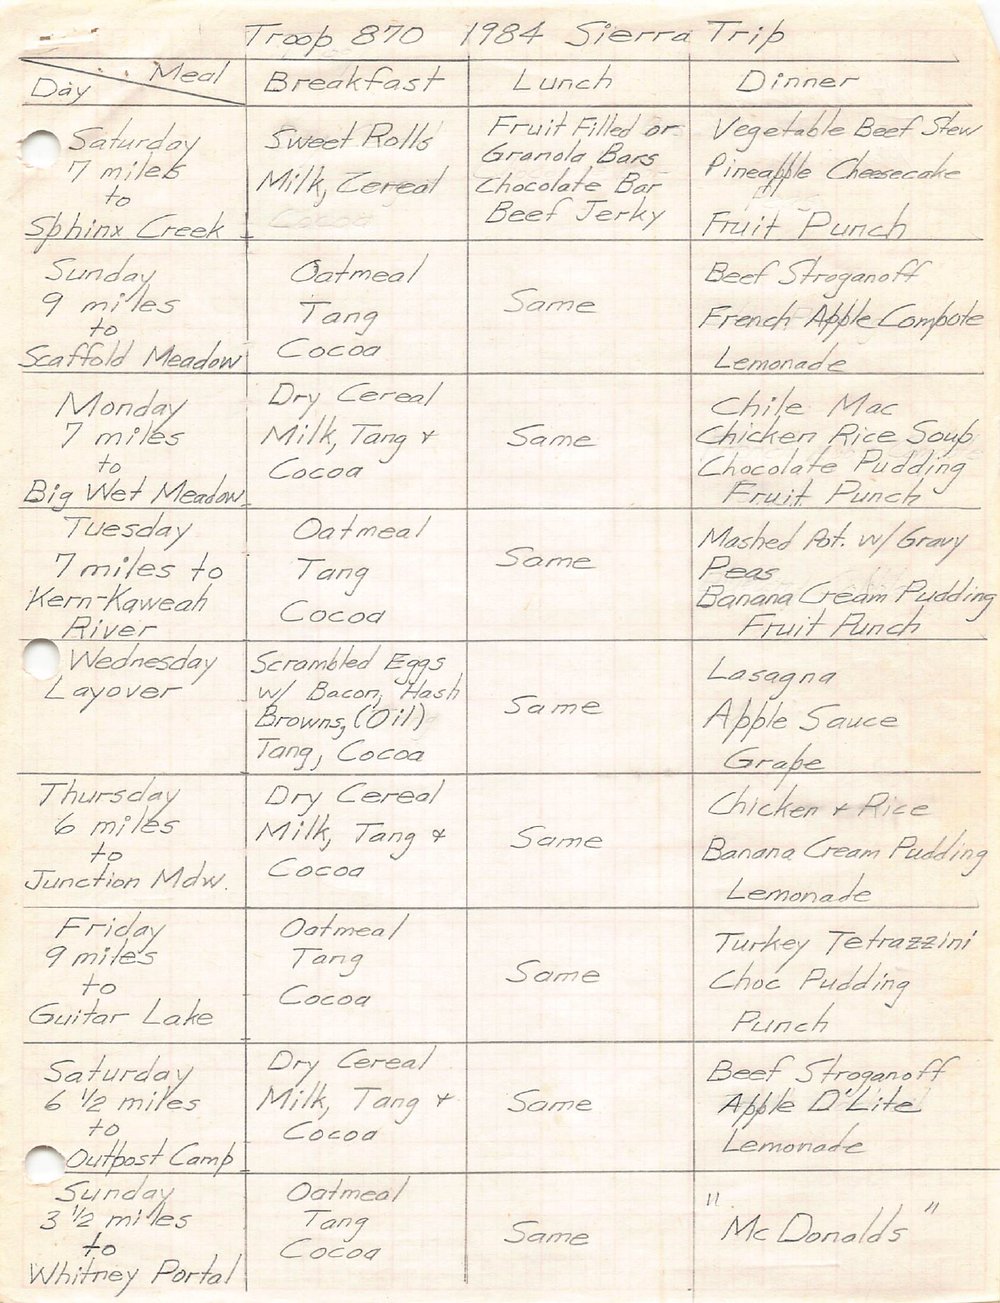 Troop 870 1984 Sierra Trip
Day Meal Breakfast Lunch Dinner
Saturday
7 miles
to
Sphinx Creek
Sweet Rolls
Milk, Cereal
Cocoa
Fruit Filled or
Granola Bars
Chocolate Bar
Beef Jerky
Vegetable Beef Stew
Pineapple Cheesecake
Fruit Punch
Sunday
9 miles
to
Scaffold Meadow
Oatmeal
Tang
Cocoa
Same
Beef Stroganoff
French Apple Compote
Lemonade
Monday
7 miles
to
Big Wet Meadow
Dry Cereal
Milk, Tang &
Cocoa
Same
Chile Mac
Chicken Rice Soup
Chocolate Pudding
Fruit Punch
Tuesday
7 miles to
Kern-Kaweah
River
Oatmeal
Tang
Cocoa
Same
Mashed Pot. w/ Gravy
Peas
Banana Cream Pudding
Fruit Punch
Wednesday
Layover
Scrambled Eggs
w/ Bacon, Hash
Browns, (Oil)
Tang, Cocoa
Same
Lasagna
Apple Sauce
Grape
Thursday
6 miles
to
Junction Mdw.
Dry Cereal
Milk, Tang &
Cocoa
Same
Chicken & Rice
Banana Cream Pudding
Lemonade
Friday
9 miles
to
Guitar Lake
Oatmeal
Tang
Cocoa
Same
Turkey Tetrazzini
Choc Pudding
Punch
Saturday
6 1/2 miles
to
Outpost Camp
Dry Cereal
Milk, Tang &
Cocoa
Same
Beef Stroganoff
Apple D'Lite
Lemonade
Sunday
3 1/2 miles
to
Whitney Portal
Oatmeal
Tang
Cocoa
Same
"McDonalds"